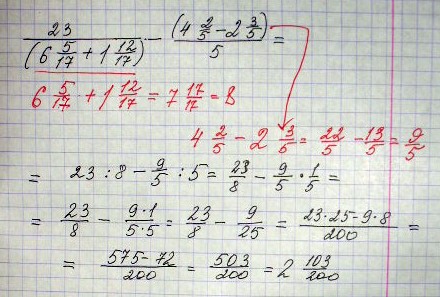 23/(6 5/17 + 1 12/17) - (4 2/5 - 2 3/5)/5 =
6 5/17 + 1 12/17 = 7 17/17 = 8
4 2/5 - 2 3/5 = 22/5 - 13/5 = 9/5
= 23 : 8 - 9/5 : 5 = 23/8 - 9/5 · 1/5 =
= 23/8 - 9·1/5·5 = 23/8 - 9/25 = 23·25-9·8/200 =
= 575-72/200 = 503/200 = 2 103/200